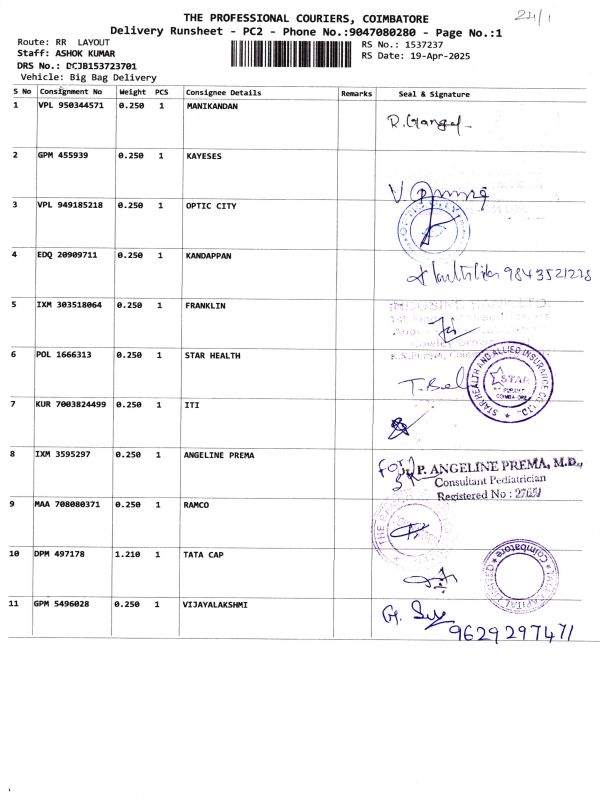 THE PROFESSIONAL COURIERS, COIMBATORE
24/1
Delivery Runsheet - PC2 - Phone No.:9047080280 - Page No.:1
Route: RR LAYOUT
RS No.: 1537237
Staff: ASHOK KUMAR
RS Date: 19-Apr-2025
DRS No.: DCJB153723701
Vehicle: Big Bag Delivery
S No Consignment No Weight PCS Consignee Details Remarks Seal & Signature
1 VPL 950344571 0.250 1 MANIKANDAN
2 GPM 455939 0.250 1 KAYESES
3 VPL 949185218 0.250 1 OPTIC CITY
4 EDQ 20909711 0.250 1 KANDAPPAN
9843521228
5 IXM 303518064 0.250 1 FRANKLIN
6 POL 1666313 0.250 1 STAR HEALTH
STAR HEALTH AND ALLIED INSURANCE CO. LTD.
STAR
7 KUR 7003824499 0.250 1 ITI
8 IXM 3595297 0.250 1 ANGELINE PREMA
For
P. ANGELINE PREMA, M.D.,
Consultant Pediatrician
Registered No :
9 MAA 708080371 0.250 1 RAMCO
10 DPM 497178 1.210 1 TATA CAP
Coimbatore
11 GPM 5496028 0.250 1 VIJAYALAKSHMI
9629297471